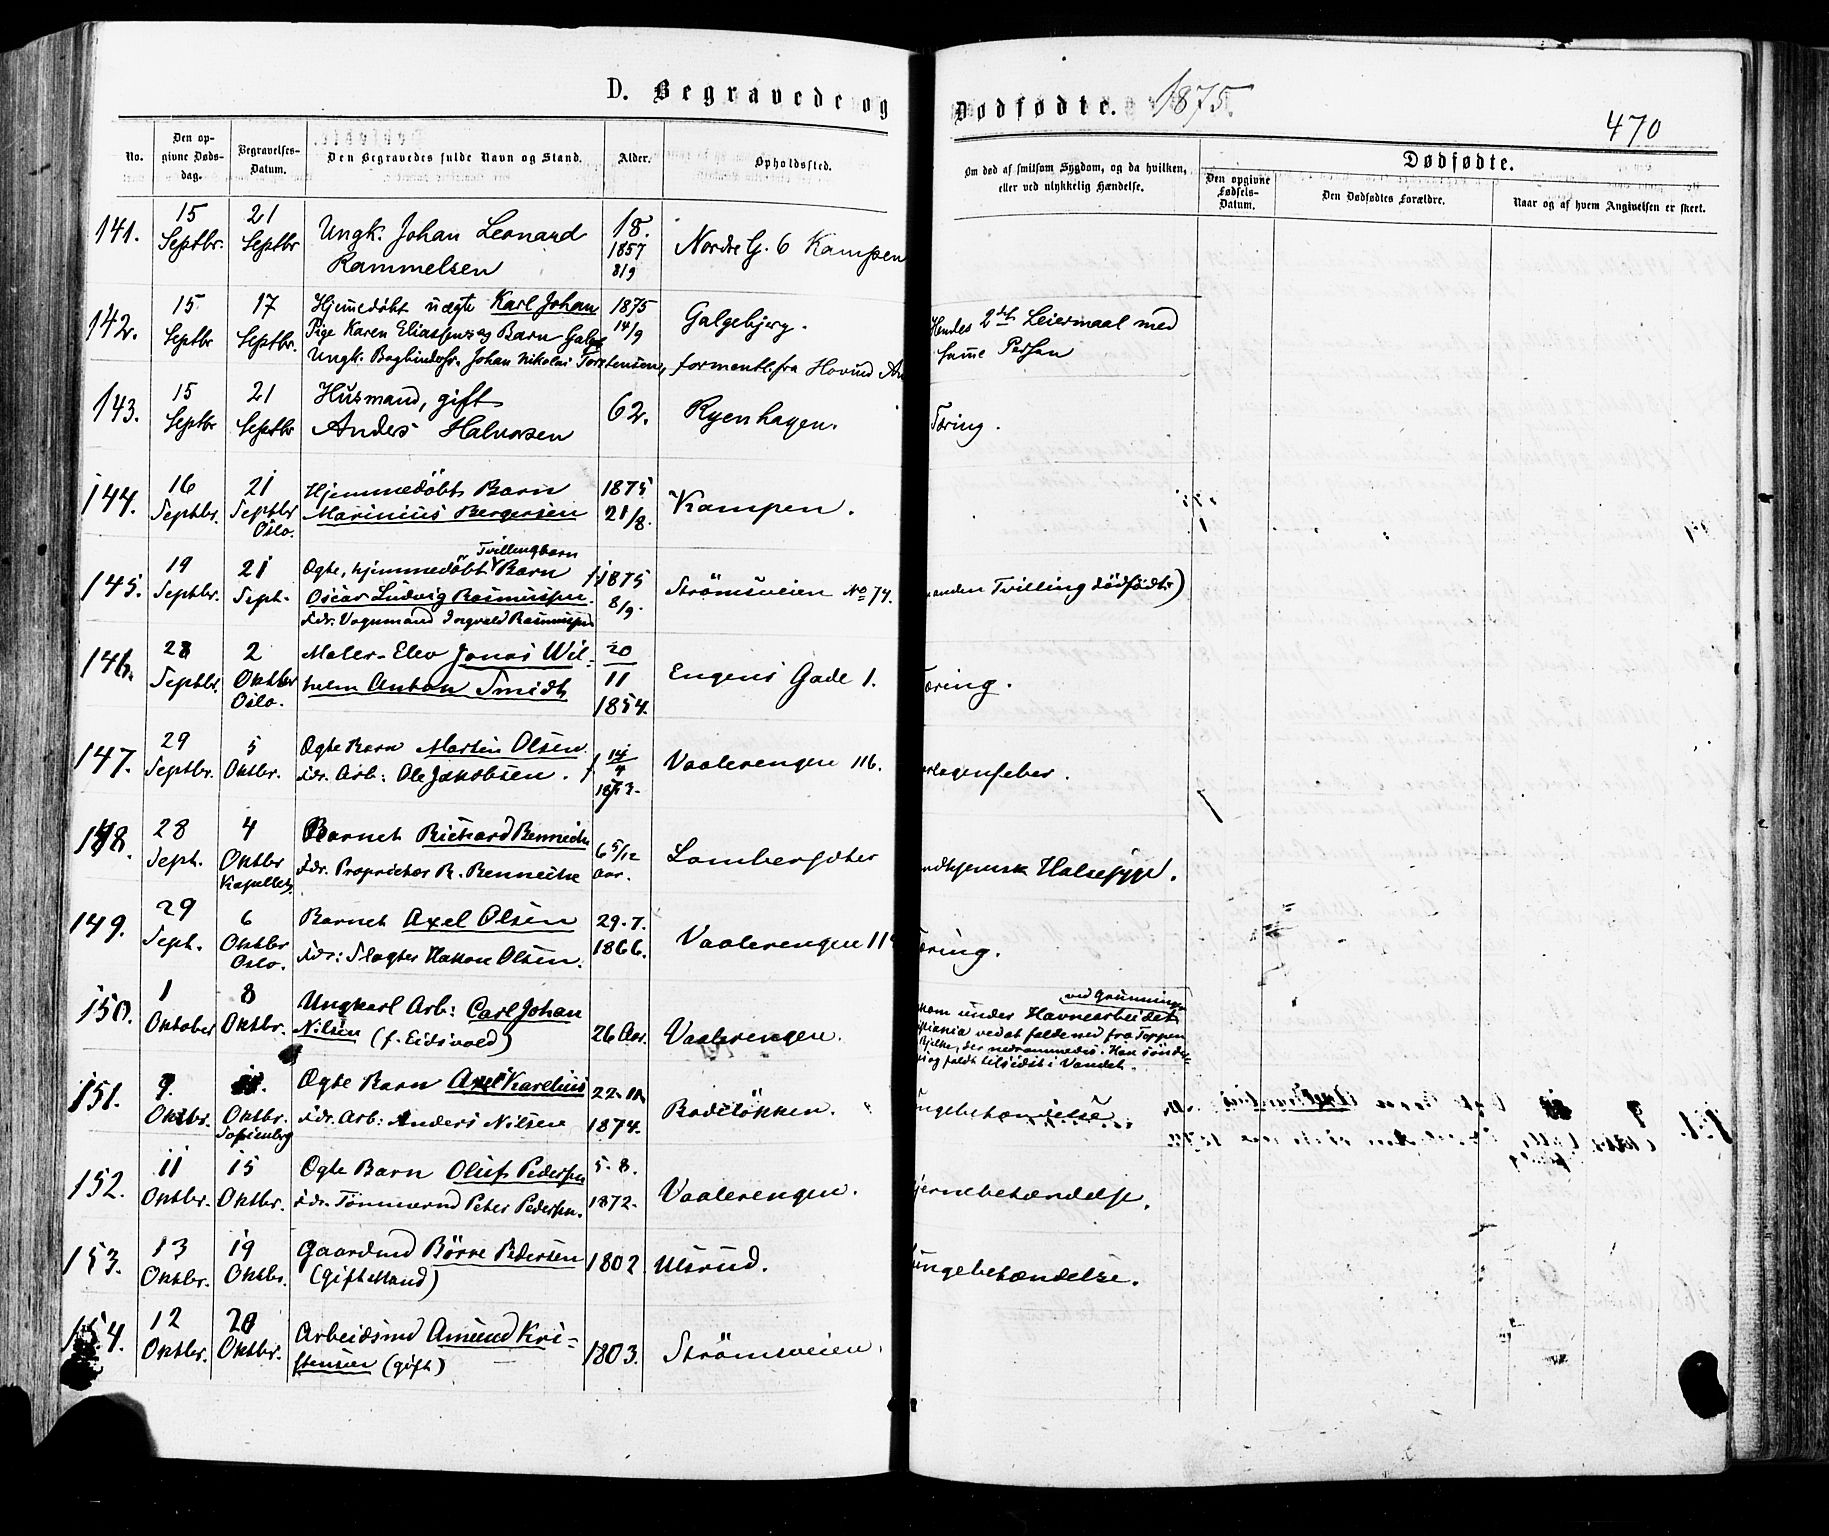 D. Begravede og Dødfødte. 1875.
470
No.
Den opgivne Dødsdag.
Begravelses-Datum.
Den Begravedes fulde Navn og Stand.
Alder.
Opholdssted.
Om død af smitsom Sygdom, og da hvilken, eller ved ulykkelig Hændelse.
Dødfødte.
Den opgivne Fødsels-Datum.
Den Dødfødtes Forældre.
Naar og af hvem Angivelsen er skeet.
141. 15 Septbr. 21 Septbr Ungk. Johan Leonard 18. Nordre G. 6 Kampen
Rammelsen 1857 8/9
142. 15 Septbr 17 Septbr. Hjemedøbt uægte Karl Johan 1875 14/9 Galgebjerg. Hendes 2det Leiermaal med
Pige Karen Eliassens Barn samme Person
Ungk. Bogbindersv. Johan Nikolai Torstensen, formentl. fra Hovind
143. 15 Septbr 21 Septbr Husmand, gift 62. Ryenhagen. Tæring.
Anders Halvorsen
144. 16 Septbr. 21 Septbr Oslo. Hjemmedöbt Barn 1875 21/8. Kampen.
Marinius Bergersen
145. 19 Septbr. 21 Septr. Ægte, hjemmedöbt Tvillingbarn Barn 1875 8/9. Strömsveien No 74. anden Tvilling dödfödt)
Oscar Ludvig Rasmussen.
Fdr. Vognmand Ingvald Rasmussen
146. 28 Septbr. 2 Oktbr Oslo. Maler-Elev Jonas Wil- 20/11 1854. Engens Gade 1. æring.
helm Anton Smidt
147. 29 Septbr. 5 Oktbr. Ægte Barn Martin Olsen. 14/4 1873. Vaalerengen 116. arlagensfeber.
Fdr. Arb: Ole Jakobsen.
148. 28 Septr. 4 Oktbr Kapellet. Barnet Richard Benneche 6 5/12 aar. Lambersæter Halsesyge.
Fdr. Proprietær R. Benneche
149. 29 Septr. 6 Oktbr Oslo. Barnet Axel Olsen 29.7. 1866. Vaalerengen 11 æring.
Fdr: Slagter Hakon Olsen.
150. 1 Oktober 8 Oktbr. Ungkarl Arb: Carl Johan 26 Aar. Vaalerengen. ved Grünningen
Nilsen (f. Eidsvold) kom under Havnearbeidet
istiania ved at falde ned fra Toppen
Bjelke, der nedrammedes. Han
og faldt tilsidst i Vandet.
151. 9. Oktbr. Oktbr. Sofienberg Ægte Barn Axel Karelius 22. 1874. Bodelökken. ungebetændelse.
Fdr. Arb: Anders Nilsen
152. 11 Oktbr. 15 Oktbr. Ægte Barn Oluf Pedersen 5.8. 1872. Vaalerengen. jernebetændelse.
Fdr. Tömmermd Peter Pedersen.
153. 13 Oktbr. 19 Oktbr. Gaardmd Börre Pedersen 1802 Ulsrud. ungebetændelse.
(gift Mand)
154. 12 Oktbr. 20 Oktbr. Arbeidsmd Amund Kri- 1803. Strömsveien.
stensen (gift)